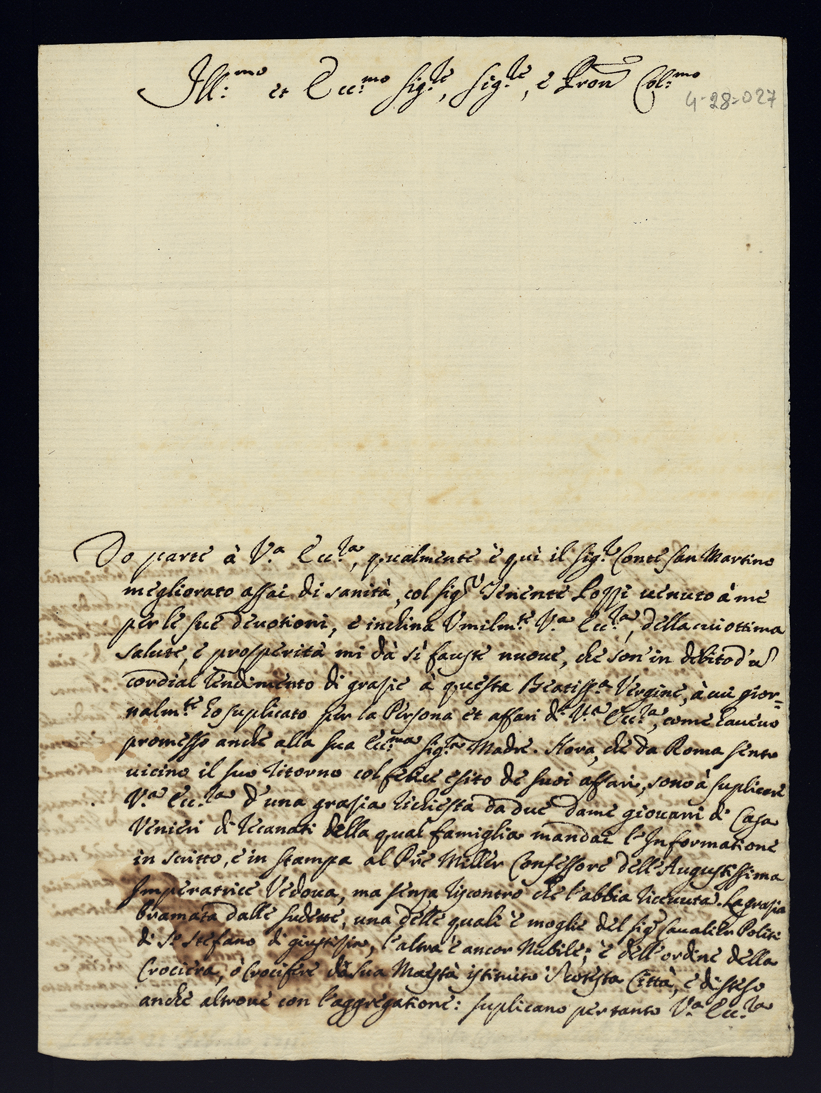 Ill:mo et Ecc:mo Sig:re, Sig:re, e Pron Col:mo
4-28-027
Do parte à V.a Ecc:za, qualmente è qui il Sig.r Conte San Martino
megliorato assai di sanità, col Sig.r Tenente Lozzi uenuto à me
per le sue deuotioni, e inclina Vmilm.te V.a Ecc:za, della cui ottima
salute, e prosperità mi dà sì fauste nuoue, che son in debito d'u
cordial rendimento di grazie à questa Beatiss.a Vergine, à cui gior=
nalm.te ho suplicato per la Persona et affari di V.a Ecc:za, come haueuo
promesso anche alla sua Ecc:ma Sig.ra Madre. Hora, che da Roma sento
uicino il suo ritorno col felice esito de suoi affari, sono à suplicare
V.a Ecc:za d'una grazia richiesta da due dame giouani di Casa
Venieri di Recanati della qual famiglia mandai l'Informatione
in scritto, e in stampa al Pre Miller Confessore dell'Augustissima
Imperatrice Vedoua, ma senza riscontro che l'abbia riceuuta. La grazia
bramata dalle sudette, una delle quali è moglie del Sig.r Caualier Politi
di S. Stefano di giustizia, l'altra è ancor Nubile; è dell'ordine della
Crociera, ò Crocifere da Sua Maestà istituito in cotesta Città, e disteso
anche altroue con l'aggregatione: suplicano per tanto V.a Ecc:za